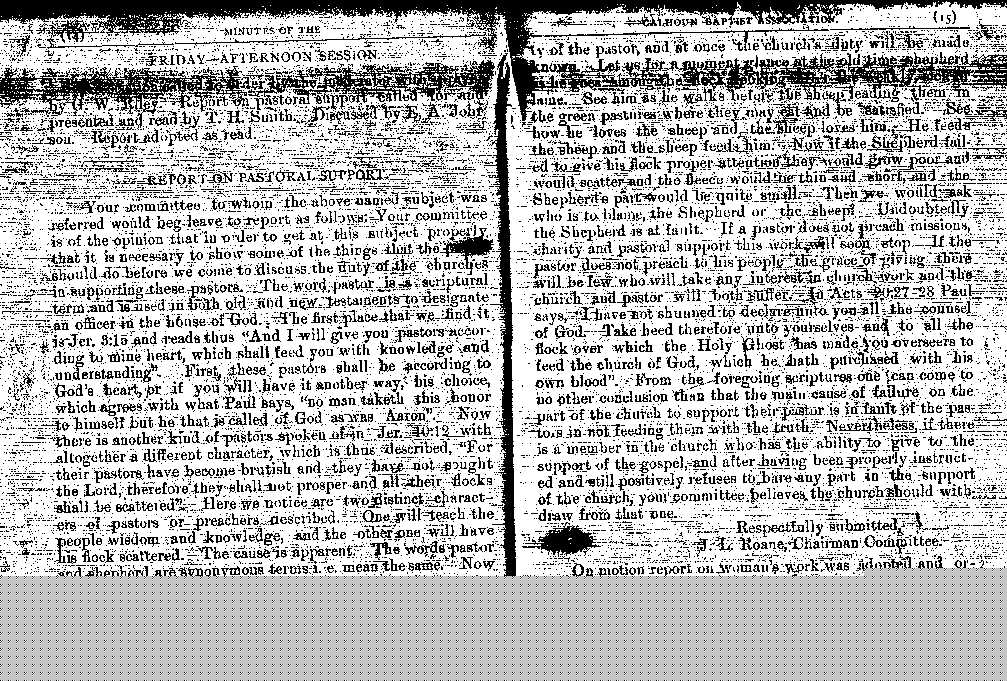 (14) MINUTES OF THE
FRIDAY—AFTERNOON SESSION.
by G. W. Riley. Report on pastoral support called for and
presented and read by T. H. Smith. Discussed by A. John
son. Report adopted as read.
REPORT ON PASTORAL SUPPORT.
Your committee to whom the above named subject was
referred would beg leave to report as follows: Your committee
is of the opinion that in order to get at this subject properly
that it is necessary to show some of the things that the
should do before we come to discuss the duty of the churches
in supporting these pastors. The word pastor is a scriptural
term and is used in both old and new testaments to designate
an officer in the house of God. The first place that we find it
is Jer. 3:15 and reads thus "And I will give you pastors accor-
ding to mine heart, which shall feed you with knowledge and
understanding". First, these pastors shall be according to
God's heart, or if you will have it another way, his choice,
which agrees with what Paul says, "no man taketh this honor
to himself but he that is called of God as was Aaron". Now
there is another kind of pastors spoken of in Jer. 10:12 with
altogether a different character, which is thus described, "For
their pastors have become brutish and they have not sought
the Lord, therefore they shall not prosper and all their flocks
shall be scattered". Here we notice are two distinct charact-
ers of pastors or preachers described. One will teach the
people wisdom and knowledge, and the other one will have
his flock scattered. The cause is apparent. The words pastor
and shepherd are synonymous terms i. e. mean the same. Now
CALHOUN BAPTIST ASSOCIATION. (15)
ty of the pastor, and at once the church's duty will be made
known. Let us for a moment glance at the old time shepherd
as he goes among the flock looking after the
lame. See him as he walks before the sheep leading them in
the green pastures where they may eat and be satisfied. See
how he loves the sheep and the sheep loves him. He feeds
the sheep and the sheep feeds him. Now if the Shepherd fail-
ed to give his flock proper attention they would grow poor and
would scatter and the fleece would be thin and short, and the
Shepherd's part would be quite small. Then we would ask
who is to blame, the Shepherd or the sheep? Undoubtedly
the Shepherd is at fault. If a pastor does not preach missions,
charity and pastoral support this work will soon stop. If the
pastor does not preach to his people the grace of giving there
will be few who will take any interest in church work and the
church and pastor will both suffer. In Acts 20:27-28 Paul
says, "I have not shunned to declare unto you all the counsel
of God. Take heed therefore unto yourselves and to all the
flock over which the Holy Ghost has made you overseers to
feed the church of God, which he hath purchased with his
own blood". From the foregoing scriptures one can come to
no other conclusion than that the main cause of failure on the
part of the church to support their pastor is in fault of the pas-
tors in not feeding them with the truth. Nevertheless, if there
is a member in the church who has the ability to give to the
support of the gospel, and after having been properly instruct-
ed and still positively refuses to bare any part in the support
of the church, your committee believes the church should with-
draw from that one.
Respectfully submitted,
J. L. Roane, Chairman Committee.
On motion report on woman's work was adopted and or-